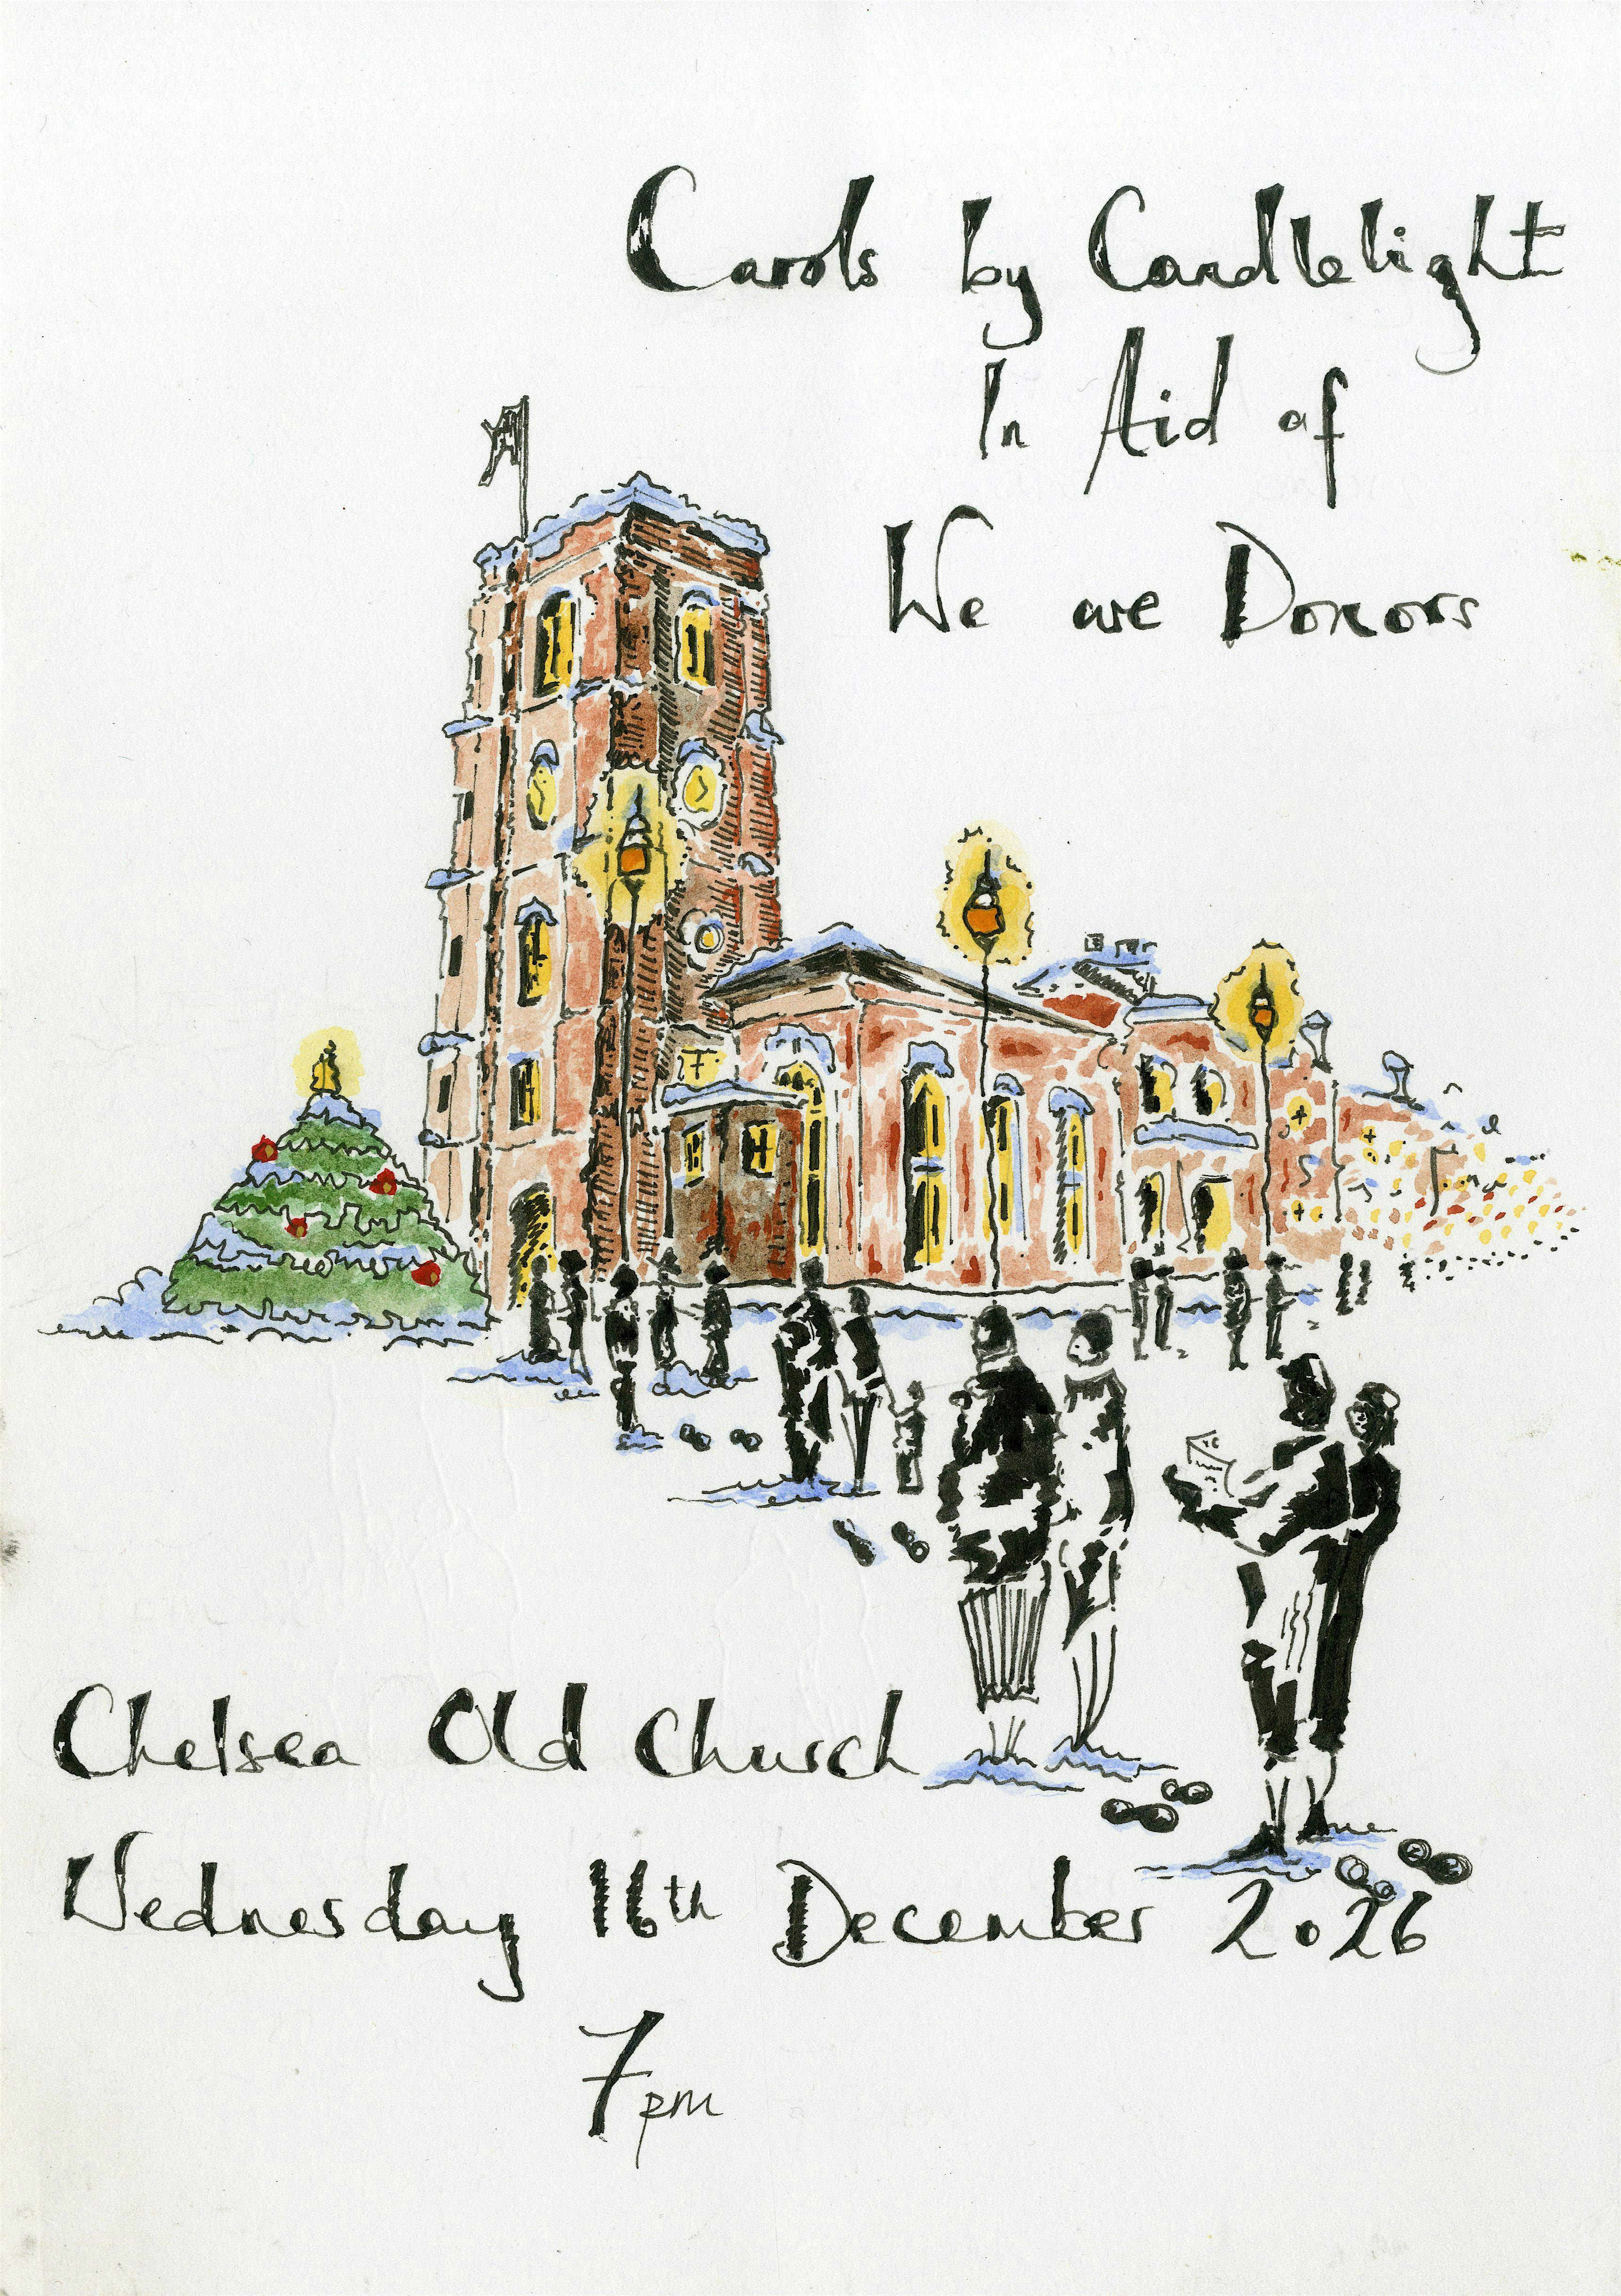 Carols by Candlelight
In Aid of
We are Donors
Chelsea Old Church
Wednesday 16th December 2026
7pm